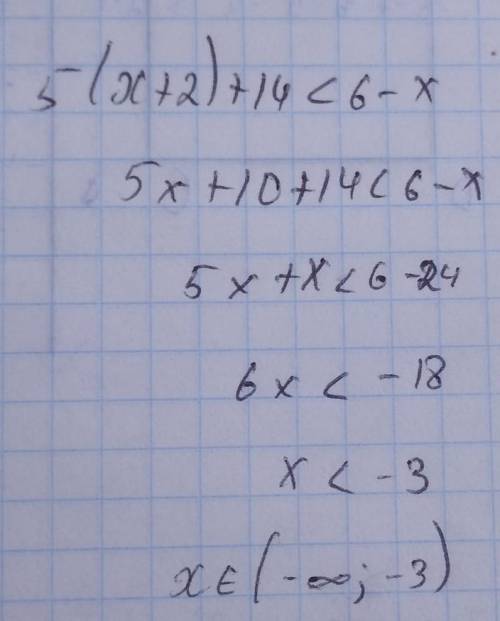 5(x+2)+14<6-x
5x+10+14<6-x
5x+x<6-24
6x<-18
x<-3
x∈(-∞;-3)